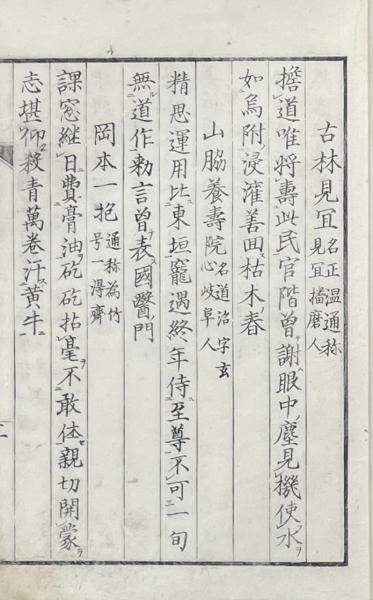 古林見冝 名正温通称
見宜播磨人
擔道唯將壽此民官階曽謝眼中塵見機使水
如烏附浸灌善田枯木春
山脇養壽院 名道治字玄
心岐阜人
精思運用比東垣寵遇終年侍至尊不可一旬
無道作勅言曽表國醫門
岡本一抱 通称為竹
号一得齋
課窓継日費膏油矻矻拈毫不敢休親切開蒙
志堪仰殺青萬卷汗黄牛